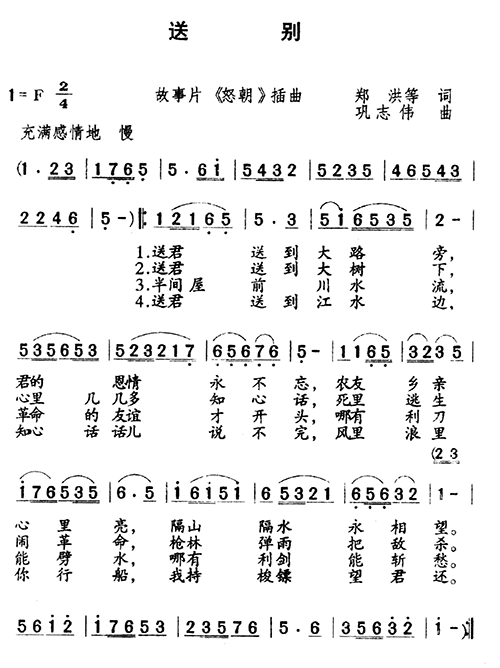 送 别
1=F 2/4 故事片《怒朝》插曲 郑洪等 词
巩志伟 曲
充满感情地 慢
(1·23 | 1765 | 5·61 | 5432 | 5235 | 46543 |
2246 | 5-) ‖: 12165 | 5·3 | 516535 | 2- |
1.送君 送到大路旁,
2.送君 送到大树下,
3.半间屋 前川水流,
4.送君 送到江水边,
535653 | 5223217 | 65676 | 5- | 1165 | 3235 |
君的 恩情 永不忘, 农友 乡亲
心里 几几多 知心话, 死里 逃生
革命 的友谊 才开头, 哪有 利刀
知心 话话儿 说不完, 风里 浪里
(23
176535 | 6·5 | 16151 | 65321 | 65632 | 1- |
心里亮, 隔山 隔水 永相望。
闹革命, 枪林 弹雨 把敌杀。
能劈水, 哪有 利剑 能斩愁。
你行船, 我持 梭镖 望君还。
5612 | 17653 | 23576 | 5·6 | 35632 | 1-) :‖